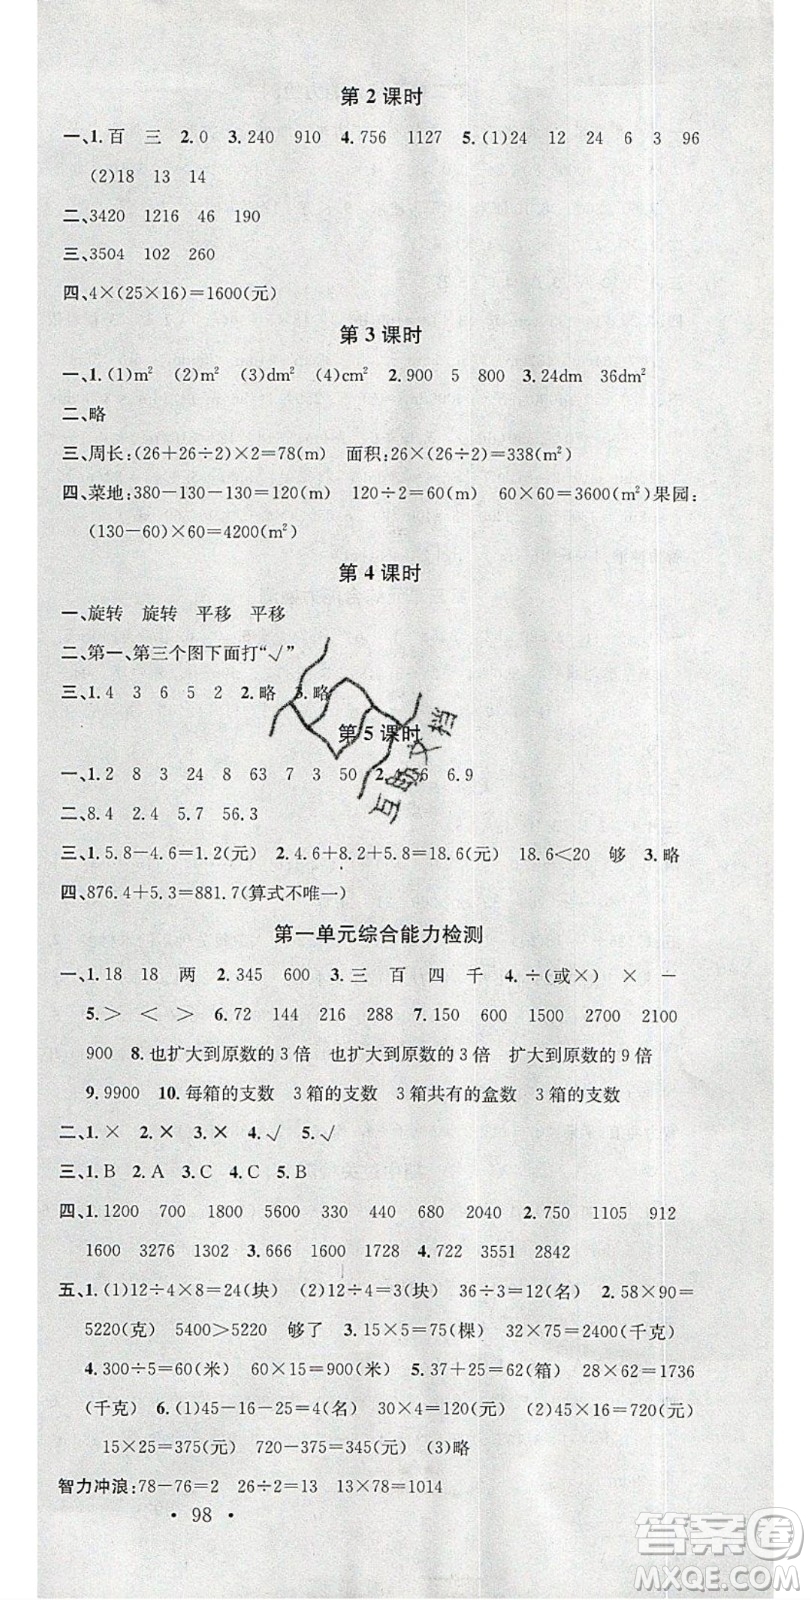 第2课时
一、1.百 三 2.0 3.240 910 4.756 1127 5.(1)24 12 24 6 3 96
(2)18 13 14
二、3420 1216 46 190
三、3504 102 260
四、4×(25×16)=1600(元)
第3课时
一、1.(1)m² (2)m² (3)dm² (4)cm² 2.900 5 800 3.24dm 36dm²
二、略
三、周长:(26+26÷2)×2=78(m) 面积:26×(26÷2)=338(m²)
四、菜地:380-130-130=120(m) 120÷2=60(m) 60×60=3600(m²)果园:
(130-60)×60=4200(m²)
第4课时
一、旋转 旋转 平移 平移
二、第一、第三个图下面打“√”
三、1.4 3 6 5 2 2.略 3.略
第5课时
一、1.2 8 3 24 8 63 7 3 50 2. 56 6.9
二、8.4 2.4 5.7 56.3
三、1.5.8-4.6=1.2(元) 2.4.6+8.2+5.8=18.6(元) 18.6<20 够 3.略
四、876.4+5.3=881.7(算式不唯一)
第一单元综合能力检测
一、1.18 18 两 2.345 600 3.三 百 四 千 4.÷(或×) × -
5.> < > 6.72 144 216 288 7.150 600 1500 2700 2100
900 8.也扩大到原数的3倍 也扩大到原数的3倍 扩大到原数的9倍
9.9900 10.每箱的支数 3箱的支数 3箱共有的盒数 3箱的支数
二、1.× 2.× 3.× 4.√ 5.√
三、1.B 2.A 3.C 4.C 5.B
四、1.1200 700 1800 5600 330 440 680 480 2.750 1105 912
1600 3276 1952 3.666 1600 1728 4.1551 2842
五、1.(1)12÷4×8=24(块) (2)12÷4=3(块) 36÷3=12(名) 2.58×90=
5220(克) 5400>5220 够了 3.15×5=75(棵) 32×75=2400(千克)
4.300÷5=60(米) 60×15=900(米) 5.37+25=62(箱) 28×62=1736
(千克) 6.(1)45-16-25=4(名) 30×4=120(元) (2)45×16=720(元)
15×25=375(元) 720-375=345(元) (3)略
智力冲浪:78-76=2 26÷2=13 13×78=1014
• 98 •
互助文档
答案圈
MXQE.COM